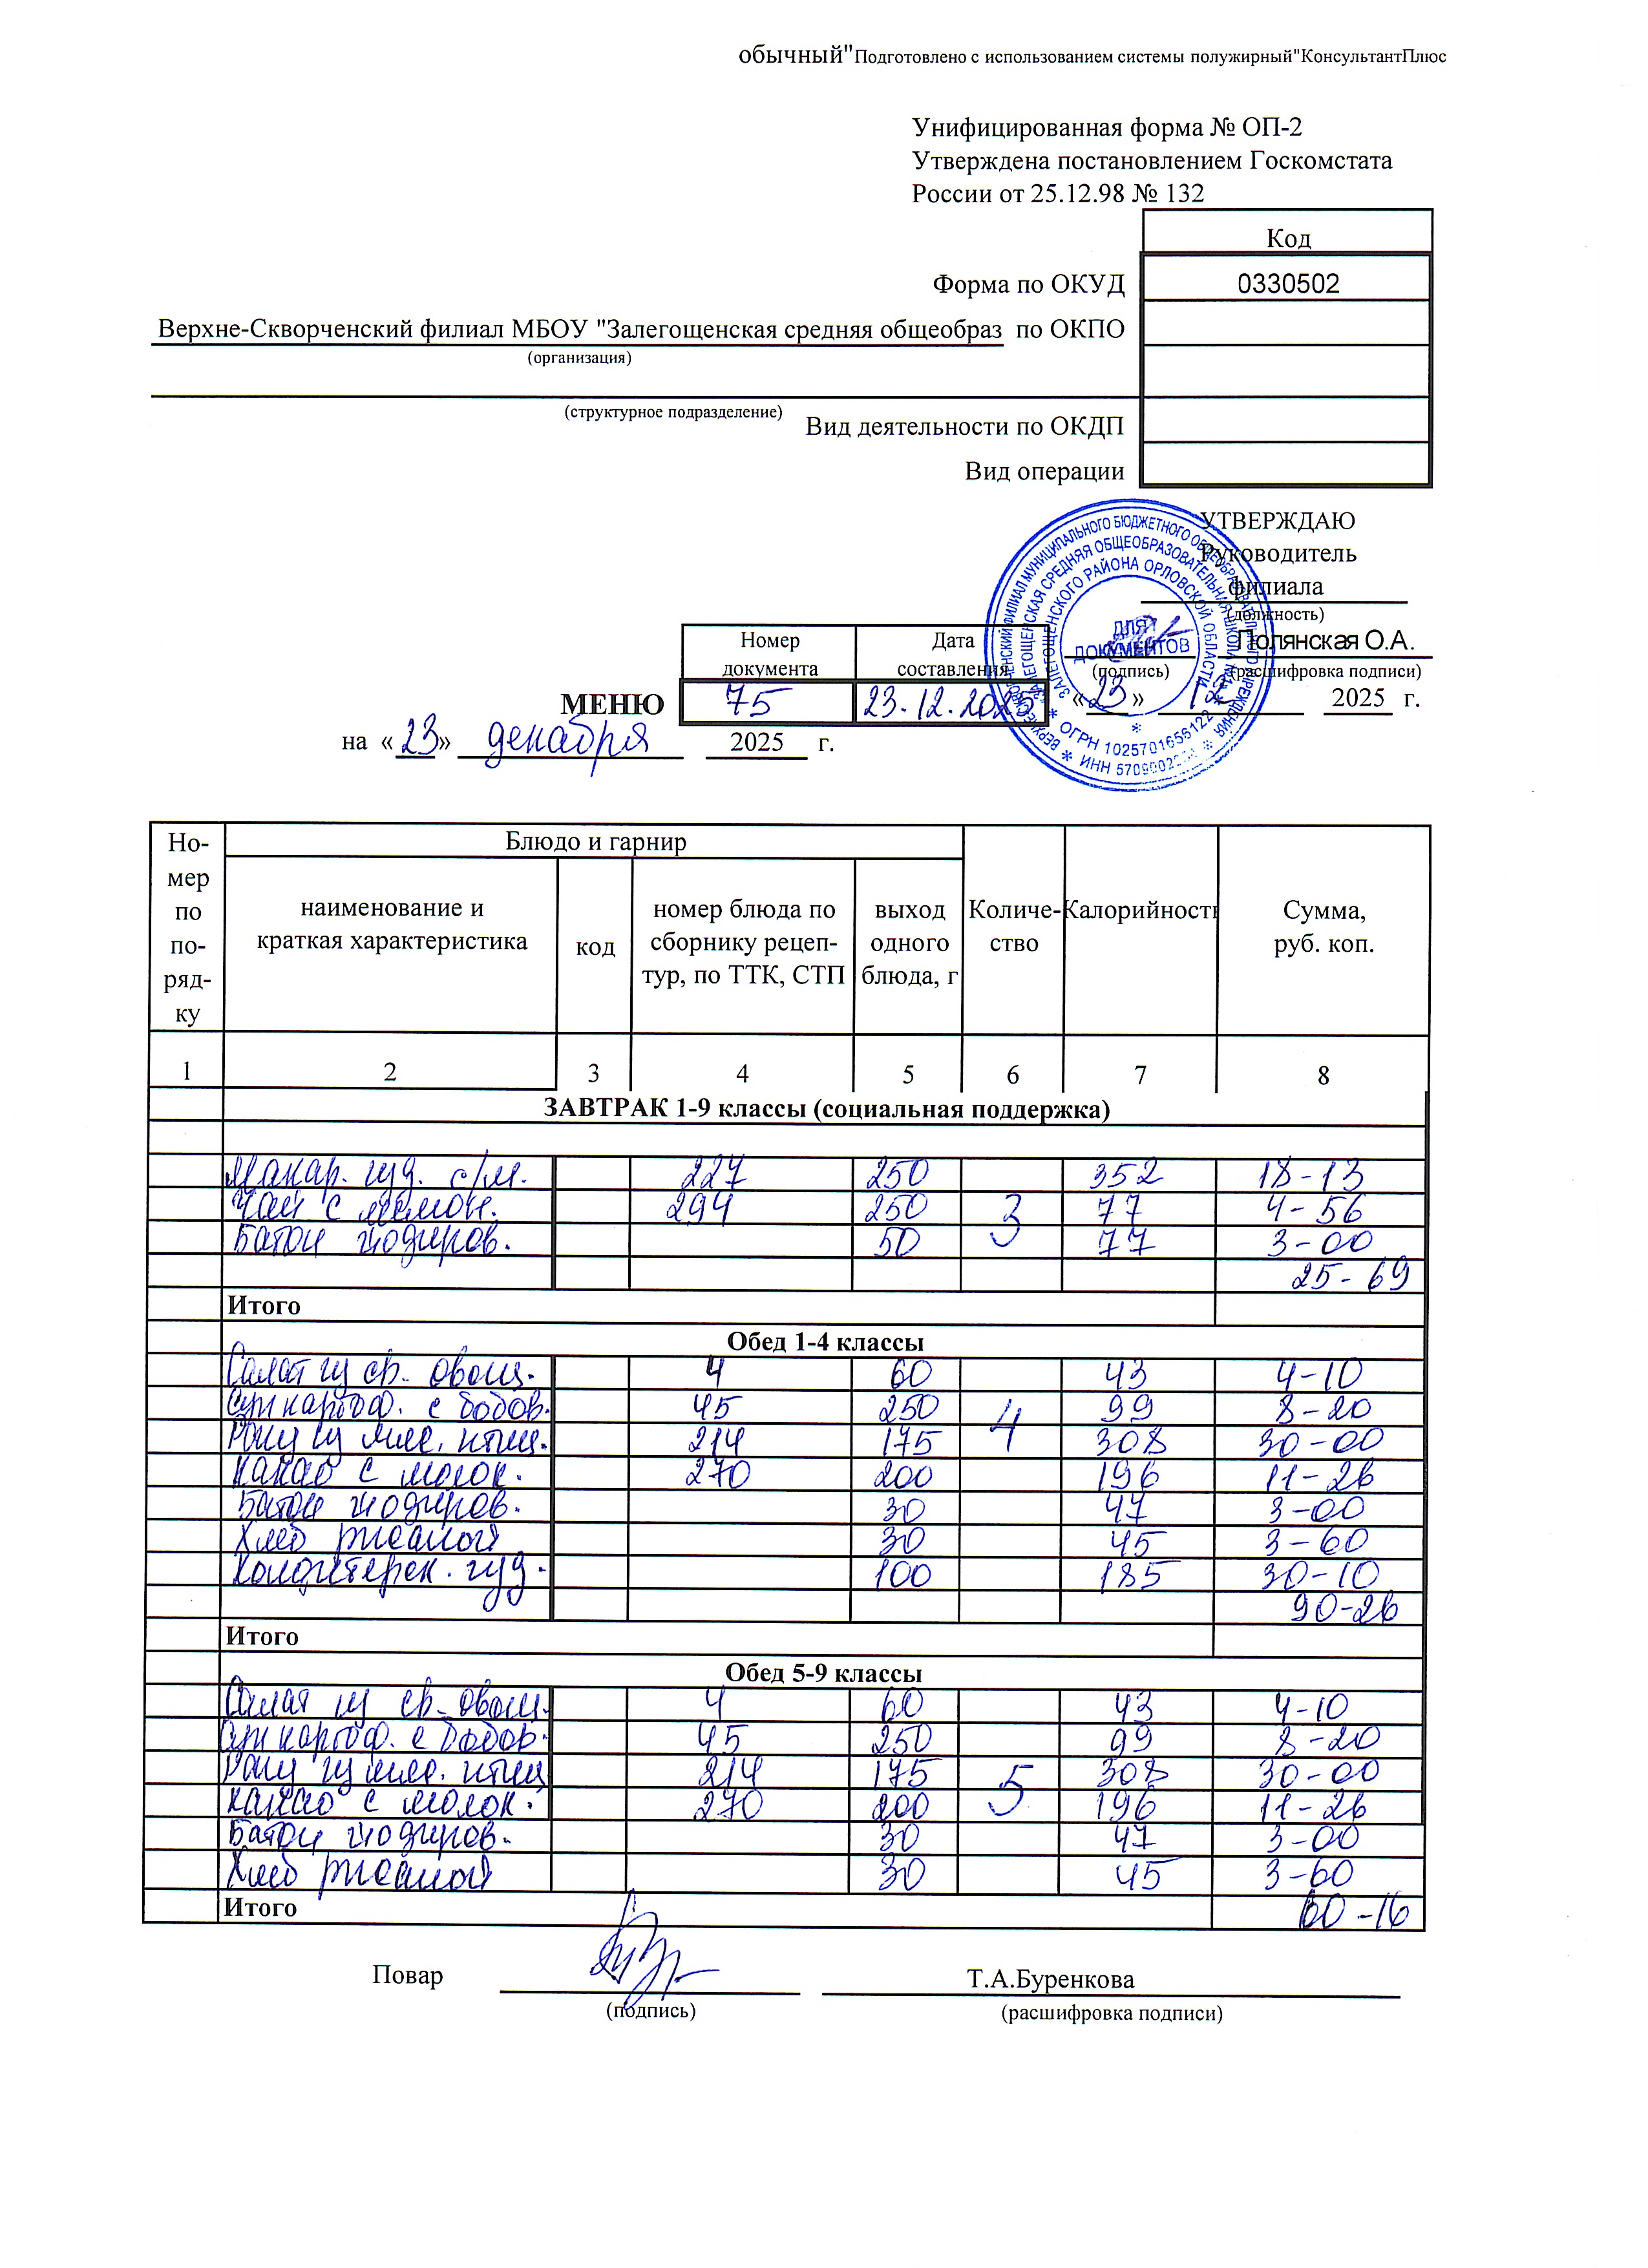 обычный"Подготовлено с использованием системы полужирный"КонсультантПлюс
Унифицированная форма № ОП-2
Утверждена постановлением Госкомстата
России от 25.12.98 № 132
Код
Форма по ОКУД 0330502
Верхне-Скворченский филиал МБОУ "Залегощенская средняя общеобраз по ОКПО
(организация)
(структурное подразделение)
Вид деятельности по ОКДП
Вид операции
УТВЕРЖДАЮ
Руководитель
филиала
(должность)
Полянская О.А.
(подпись) (расшифровка подписи)
«23» 12 2025 г.
ДЛЯ
ДОКУМЕНТОВ
ЗАЛЕГОЩЕНСКОГО РАЙОНА ОРЛОВСКОЙ ОБЛАСТИ
ОГРН 1025701656122
Номер документа Дата составления
МЕНЮ 75 23.12.2025
на «23» декабря 2025 г.
Но-мер по по-ряд-ку Блюдо и гарнир Количе-ство Калорийность Сумма, руб. коп.
наименование и краткая характеристика код номер блюда по сборнику рецеп-тур, по ТТК, СТП выход одного блюда, г
1 2 3 4 5 6 7 8
ЗАВТРАК 1-9 классы (социальная поддержка)
Макар. изд. с/м. 227 250 352 18-13
Чай с лимон. 294 250 3 77 4-56
Батон йодиров. 50 77 3-00
25-69
Итого
Обед 1-4 классы
Салат из св. овощ. 4 60 43 4-10
Суп картоф. с бобов. 45 250 4 99 8-20
Рагу из мяс. птиц. 214 175 308 30-00
Какао с молок. 270 200 196 11-26
Батон йодиров. 30 47 3-00
Хлеб ржаной 30 45 3-60
Кондитерск. изд. 100 185 30-10
90-26
Итого
Обед 5-9 классы
Салат из св. овощ. 4 60 43 4-10
Суп картоф. с бобов. 45 250 99 8-20
Рагу из мяс. птиц 214 175 5 308 30-00
Какао с молок. 270 200 196 11-26
Батон йодиров. 30 47 3-00
Хлеб ржаной 30 45 3-60
Итого 60-16
Повар Т.А.Буренкова
(подпись) (расшифровка подписи)